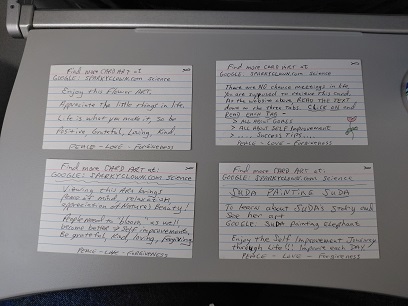 Find more CARD ART at
GOOGLE: SPARKYCLOWN.com science
Enjoy this Flower ART.
Appreciate the little things in life.
Life is what you make it, so be
Positive, Grateful, Loving, Kind.
PEACE - LOVE - FORGIVENESS
Find more CARD ART at
GOOGLE: SPARKYCLOWN.com science
There are NO chance meetings in life.
You are supposed to receive this card.
At the website above, READ THE TEXT
down to the three Tabs. CLICK ON and
READ EACH TAB -
> ALL ABOUT GOALS
> ALL ABOUT SELF IMPROVEMENT
> SUCCESS TIPS...
PEACE - LOVE - FORGIVENESS
Find more CARD ART at:
GOOGLE: SPARKYCLOWN.com science
Viewing this ART brings
Peace of mind, relaxation,
appreciation of Nature's Beauty!
People need to bloom as well
become better > Self improvement,
Be grateful, Kind, loving, forgiving.
PEACE - LOVE - FORGIVENESS
Find more CARD ART at:
GOOGLE: SPARKYCLOWN.com Science
SUDA PAINTING SUDA
To learn about SUDA's story and
See her art
GOOGLE: SUDA Painting Elephant
Enjoy the Self Improvement Journey
through Life!! Improve each DAY!
PEACE - LOVE - FORGIVENESS